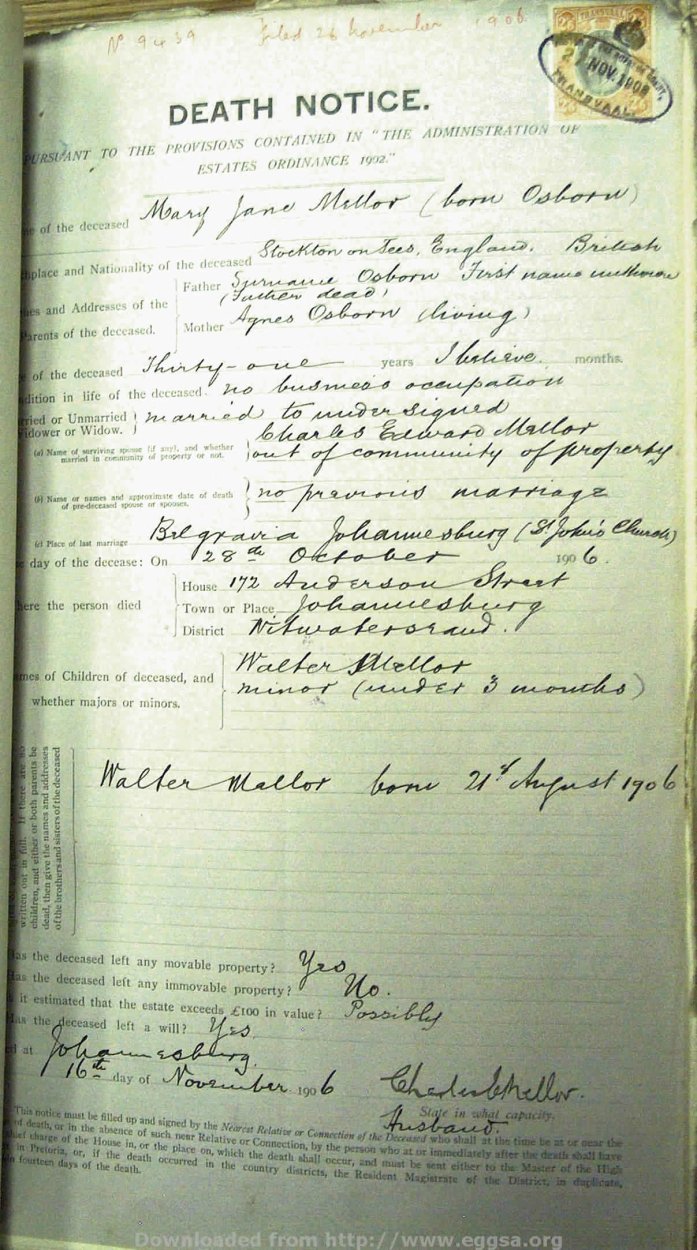 No 9439 Filed 26 November 1906
TRANSVAAL
NOV. 1906
TRANSVAAL
DEATH NOTICE.
PURSUANT TO THE PROVISIONS CONTAINED IN "THE ADMINISTRATION OF
ESTATES ORDINANCE 1902."
of the deceased Mary Jane Mellor (born Osborn)
place and Nationality of the deceased Stockton on Tees, England. British
and Addresses of the Father Surname Osborn First name unknown
(Father dead)
Parents of the deceased. Mother Agnes Osborn (living)
of the deceased Thirty-one years I believe. months.
in life of the deceased. no business occupation
or Unmarried married to undersigned
Widower or Widow. Charles Edward Mellor
(a) Name of surviving spouse (if any), and whether married in community of property or not. out of community of property
(b) Name or names and approximate date of death of pre-deceased spouse or spouses. no previous marriage
(c) Place of last marriage Belgravia Johannesburg (St John's Church)
day of the decease: On 28th October 1906.
House 172 Anderson Street
where the person died Town or Place Johannesburg
District Witwatersrand.
Names of Children of deceased, and Walter Mellor
whether majors or minors. minor (under 3 months)
written out in full. If there are no
children, and either or both parents be
dead, then give the names and addresses
of the brothers and sisters of the deceased
Walter Mellor born 21st August 1906
Has the deceased left any movable property? Yes
Has the deceased left any immovable property? No.
it estimated that the estate exceeds £100 in value? Possibly
Has the deceased left a will? Yes.
at Johannesburg.
16th day of November 1906 Charles E Mellor.
State in what capacity.
Husband.
This notice must be filled up and signed by the Nearest Relative or Connection of the Deceased who shall at the time be at or near the
of death, or in the absence of such near Relative or Connection, by the person who at or immediately after the death shall have
chief charge of the House in, or the place on, which the death shall occur, and must be sent either to the Master of the High
in Pretoria, or, if the death occurred in the country districts, the Resident Magistrate of the District, in duplicate,
fourteen days of the death.
Downloaded from http://www.eggsa.org